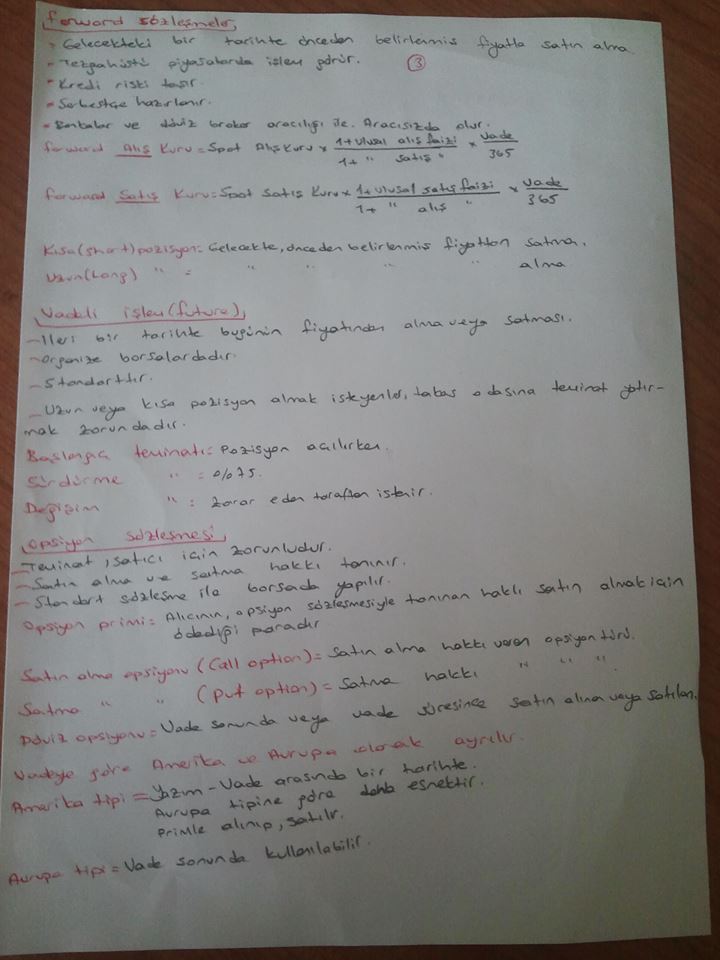 Forward sözleşmeler
- Gelecekteki bir tarihte önceden belirlenmiş fiyatla satın alma
- Tezgahüstü piyasalarda işlem görür.
③
- Kredi riski taşır.
- Serbestçe hazırlanır.
- Bankalar ve döviz broker aracılığı ile. Aracısızda olur.
forward Alış Kuru = Spot Alış Kuru x 1+ulusal alış faizi / 1+ " satış " x vade / 365
forward Satış Kuru = Spot satış Kuru x 1+ulusal satış faizi / 1+ " alış " x vade / 365
Kısa (short) pozisyon = Gelecekte, önceden belirlenmiş fiyattan satma.
Uzun (Long) " = " " " " alma
Vadeli işlem (future)
- İleri bir tarihte bugünün fiyatından alma veya satması.
- Organize borsalardadır.
- Standarttır.
- Uzun veya kısa pozisyon almak isteyenler, takas odasına teminat yatır-
mak zorundadır.
Başlangıç teminatı = Pozisyon açılırken.
Sürdürme " = %75.
Değişim " : zarar eden taraftan istenir.
Opsiyon sözleşmesi
- Teminat, satıcı için zorunludur.
- Satın alma ve satma hakkı tanınır.
- Standart sözleşme ile borsada yapılır.
Opsiyon primi = Alıcının, opsiyon sözleşmesiyle tanınan hakkı satın almak için
ödediği paradır
Satın alma opsiyonu (Call option) = Satın alma hakkı veren opsiyon türü.
Satma " " (put option) = Satma hakkı " " ".
Döviz opsiyonu = Vade sonunda veya vade süresince satın alma veya satılan.
Vadeye göre Amerika ve Avrupa olarak ayrılır.
Amerika tipi = Yazım - Vade arasında bir tarihte.
Avrupa tipine göre daha esnektir.
Primle alınıp, satılır.
Avrupa tipi = Vade sonunda kullanılabilir.